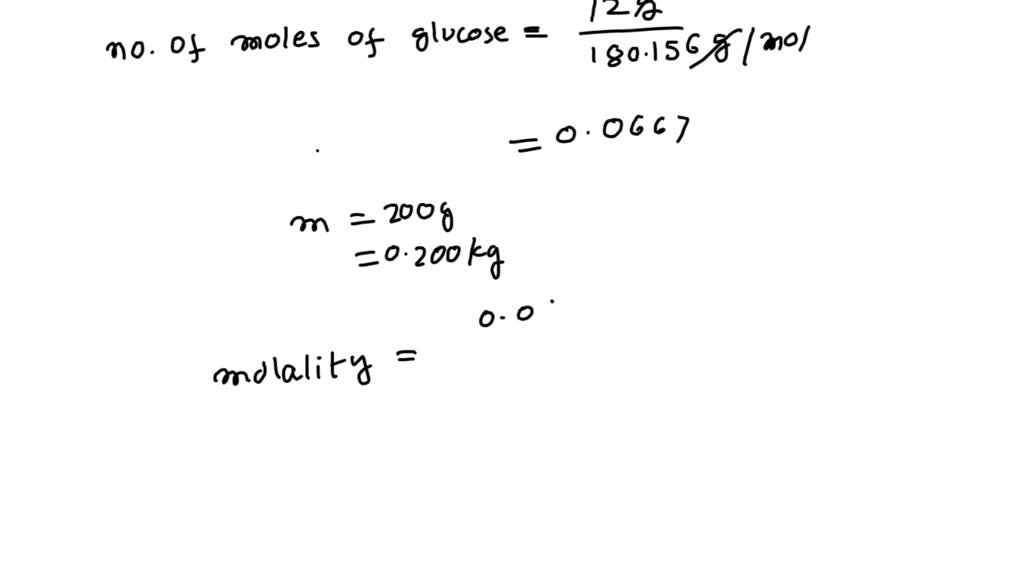 12g
no. of moles of glucose = 180.156 g/mol
= 0.0667
m = 200g
= 0.200kg
0.0
molality =